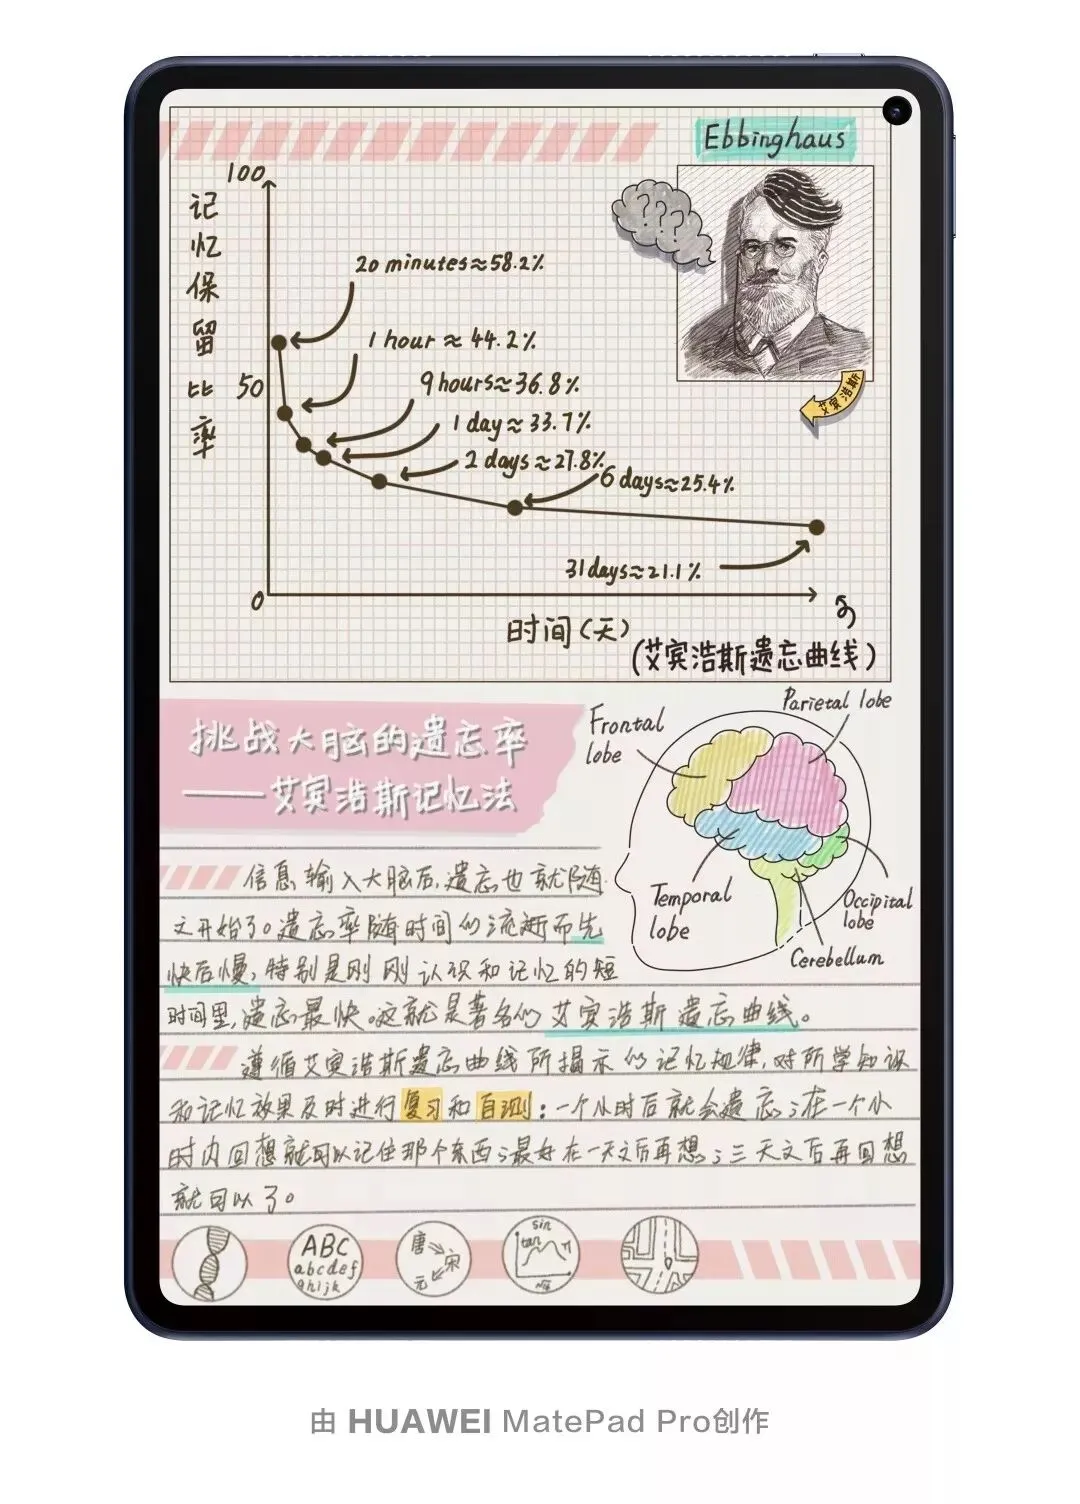 Ebbinghaus
100
记忆保留比率
50
0
???
20 minutes≈58.2%
1 hour ≈ 44.2%
9 hours≈36.8%
1 day≈33.7%
2 days≈27.8%
6 days≈25.4%
31days≈21.1%
艾宾浩斯
时间(天)
(艾宾浩斯遗忘曲线)
挑战大脑的遗忘率
——艾宾浩斯记忆法
Frontal
lobe
Parietal lobe
Temporal
lobe
Occipital
lobe
Cerebellum
信息输入大脑后,遗忘也就随
之开始了。遗忘率随时间的流逝而先
快后慢,特别是刚刚认识和记忆的短
时间里,遗忘最快。这就是著名的艾宾浩斯遗忘曲线。
遵循艾宾浩斯遗忘曲线所揭示的记忆规律,对所学知识
和记忆效果及时进行复习和自测:一个小时后就会遗忘;在一个小
时内回想就可以记住那个东西;最好在一天之后再想;三天之后再回想
就可以了。
ABC
abcdef
ghijk
唐
宋
元
sin
tan
由 HUAWEI MatePad Pro创作